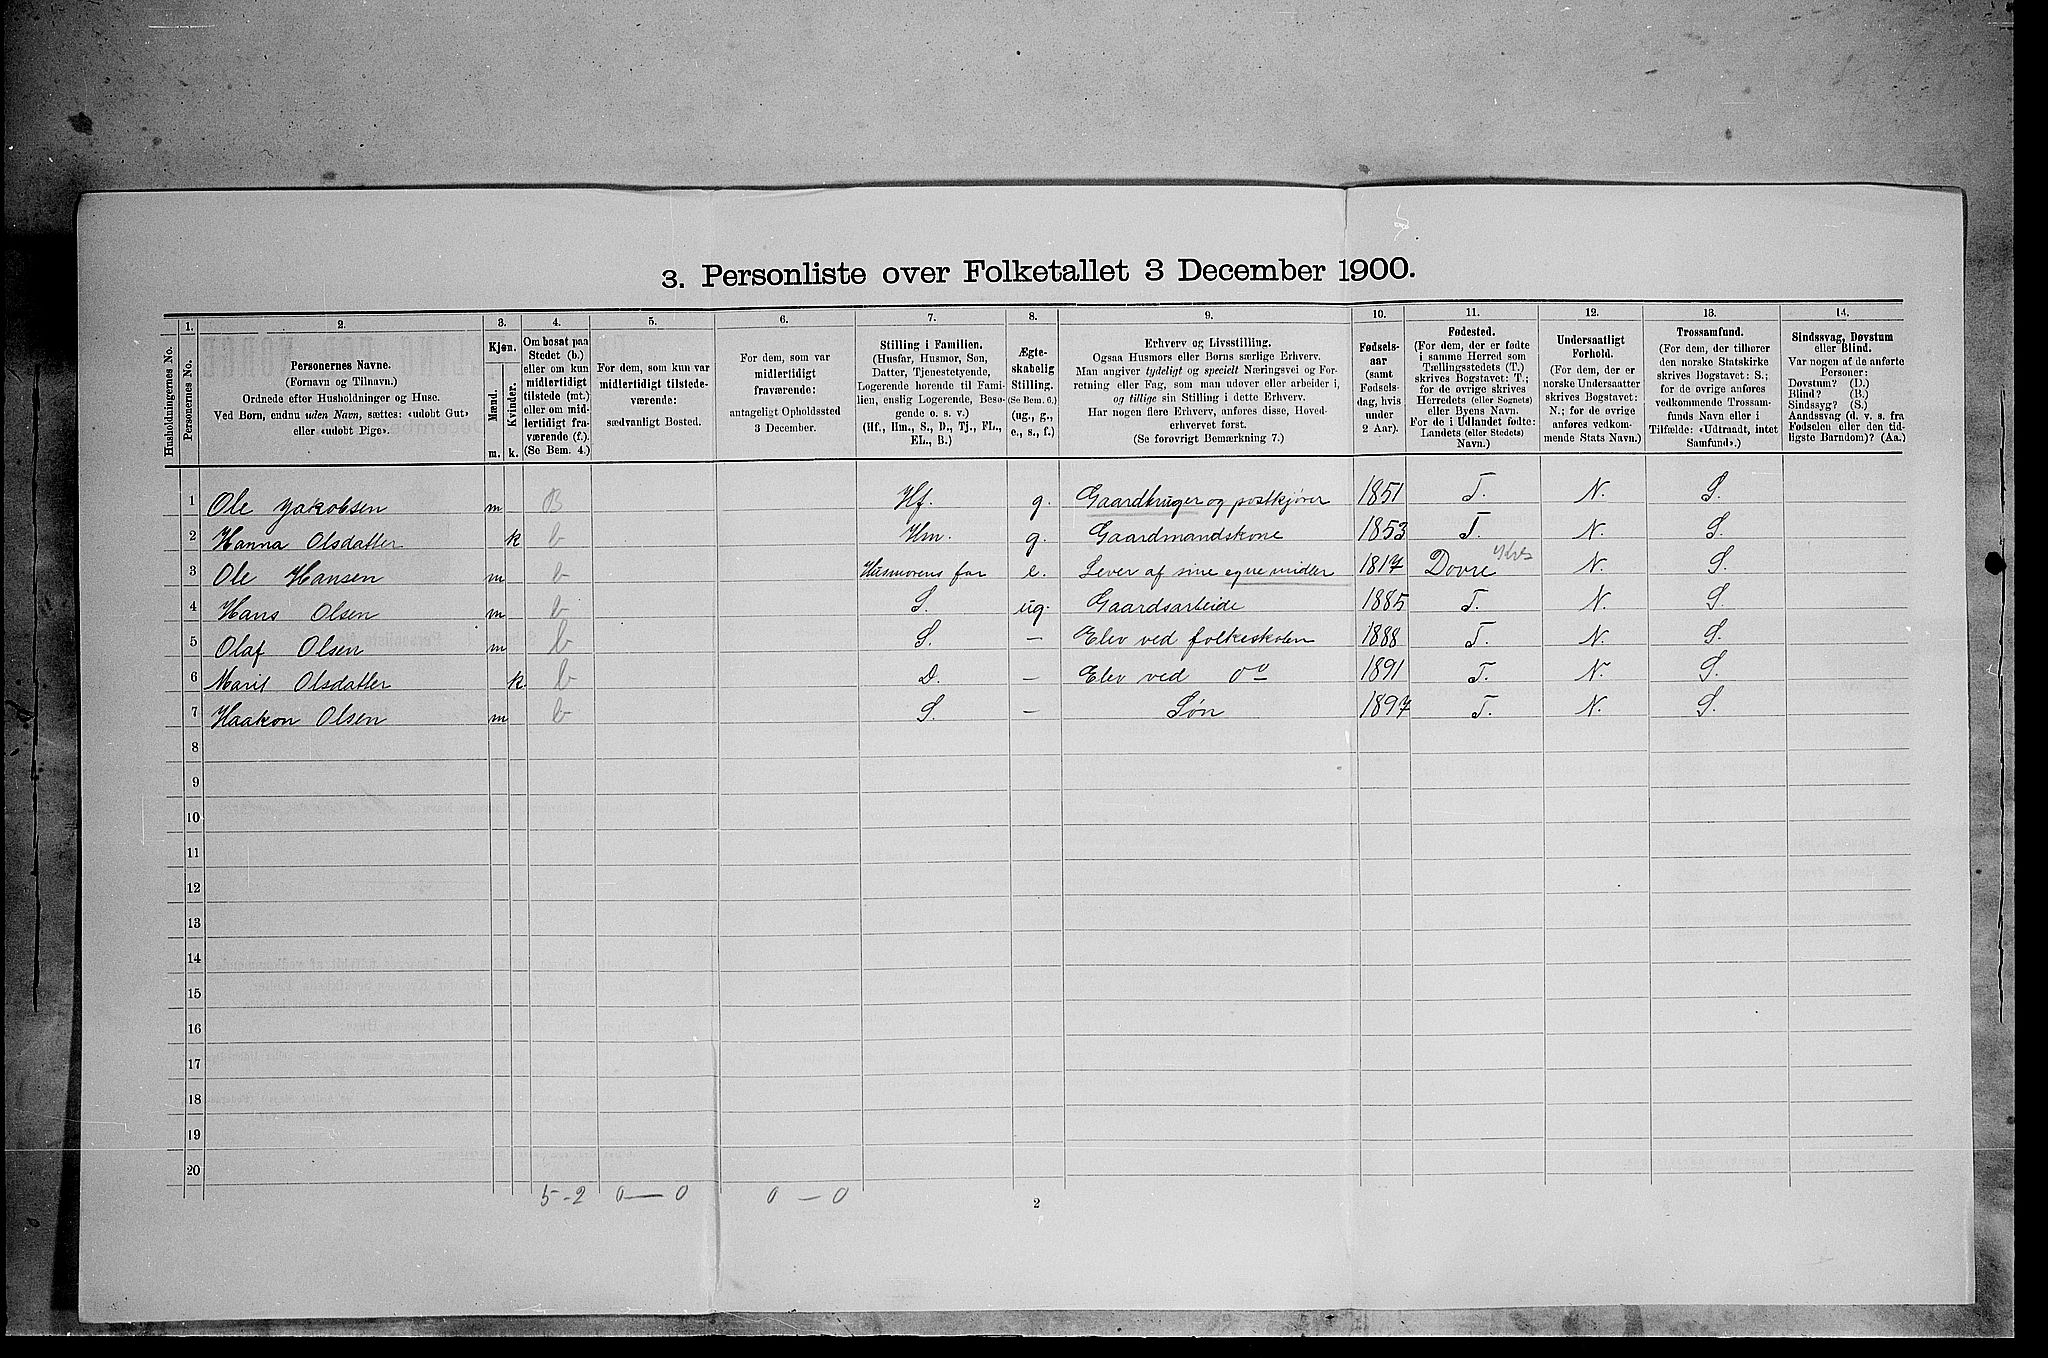 3. Personliste over Folketallet 3 December 1900.
Husholdningernes No.
1.
Personernes No.
2.
Personernes Navne.
(Fornavn og Tilnavn.)
Ordnede efter Husholdninger og Huse.
Ved Børn, endnu uden Navn, sættes: «udøbt Gut»
eller «udøbt Pige».
3.
Kjøn.
Mænd.
Kvinder.
m. k.
4.
Om bosat paa
Stedet (b.)
eller om kun
midlertidigt
tilstede (mt.)
eller om mid-
lertidigt fra-
værende (f.).
(Se Bem. 4.)
5.
For dem, som kun var
midlertidigt tilstede-
værende:
sædvanligt Bosted.
6.
For dem, som var
midlertidigt
fraværende:
antageligt Opholdssted
3 December.
7.
Stilling i Familien.
(Husfar, Husmor, Søn,
Datter, Tjenestetyende,
Logerende hørende til Fami-
lien, enslig Logerende, Besø-
gende o. s. v.)
(Hf., Hm., S., D., Tj., FL.,
EL., B.)
8.
Ægte-
skabelig
Stilling.
(Se Bem. 6.)
(ug., g.,
e., s., f.)
9.
Erhverv og Livsstilling.
Ogsaa Husmors eller Børns særlige Erhverv.
Man angiver tydeligt og specielt Næringsvei og For-
retning eller Fag, som man udøver eller arbeider i,
og tillige sin Stilling i dette Erhverv.
Har nogen flere Erhverv, anføres disse, Hoved-
erhvervet først.
(Se forøvrigt Bemærkning 7.)
10.
Fødsels-
aar
(samt
Fødsels-
dag, hvis
under
2 Aar).
11.
Fødested.
(For dem, der er fødte
i samme Herred som
Tællingsstedets (T.)
skrives Bogstavet: T.;
for de øvrige skrives
Herredets (eller Sognets)
eller Byens Navn.
For de i Udlandet fødte:
Landets (eller Stedets)
Navn.)
12.
Undersaatligt
Forhold.
(For dem, der er
norske Undersaatter
skrives Bogstavet:
N.; for de øvrige
anføres vedkom-
mende Stats Navn.)
13.
Trossamfund.
(For dem, der tilhører
den norske Statskirke
skrives Bogstavet: S.;
for de øvrige anføres
vedkommende Trossam-
funds Navn eller i
Tilfælde: «Udtraadt, intet
Samfund».)
14.
Sindssvag, Døvstum
eller Blind.
Var nogen af de anførte
Personer:
Døvstum? (D.)
Blind? (B.)
Sindssyg? (S.)
Aandssvag (d. v. s. fra
Fødselen eller den tid-
ligste Barndom)? (Aa.)
1 Ole Jakobsen m B Hf. g. Gaardbruger og postkjører 1851 T. N. S.
2 Hanna Olsdatter k b Hm. g. Gaardmandskone 1853 T. N. S.
3 Ole Hansen m b Husmorens far e. Lever af sine egne midler 1817 Dovre N. S.
4 Hans Olsen m b S. ug. Gaardsarbeide 1885 T. N. S.
5 Olaf Olsen m b S. — Elev ved folkeskolen 1888 T. N. S.
6 Marit Olsdatter k. b D. — Elev ved do 1891 T. N. S.
7 Haakon Olsen m b S. — Søn 1897 T. N. S.
8
9
10
11
12
13
14
15
16
17
18
19
20
5-2 0—0 0—0
2